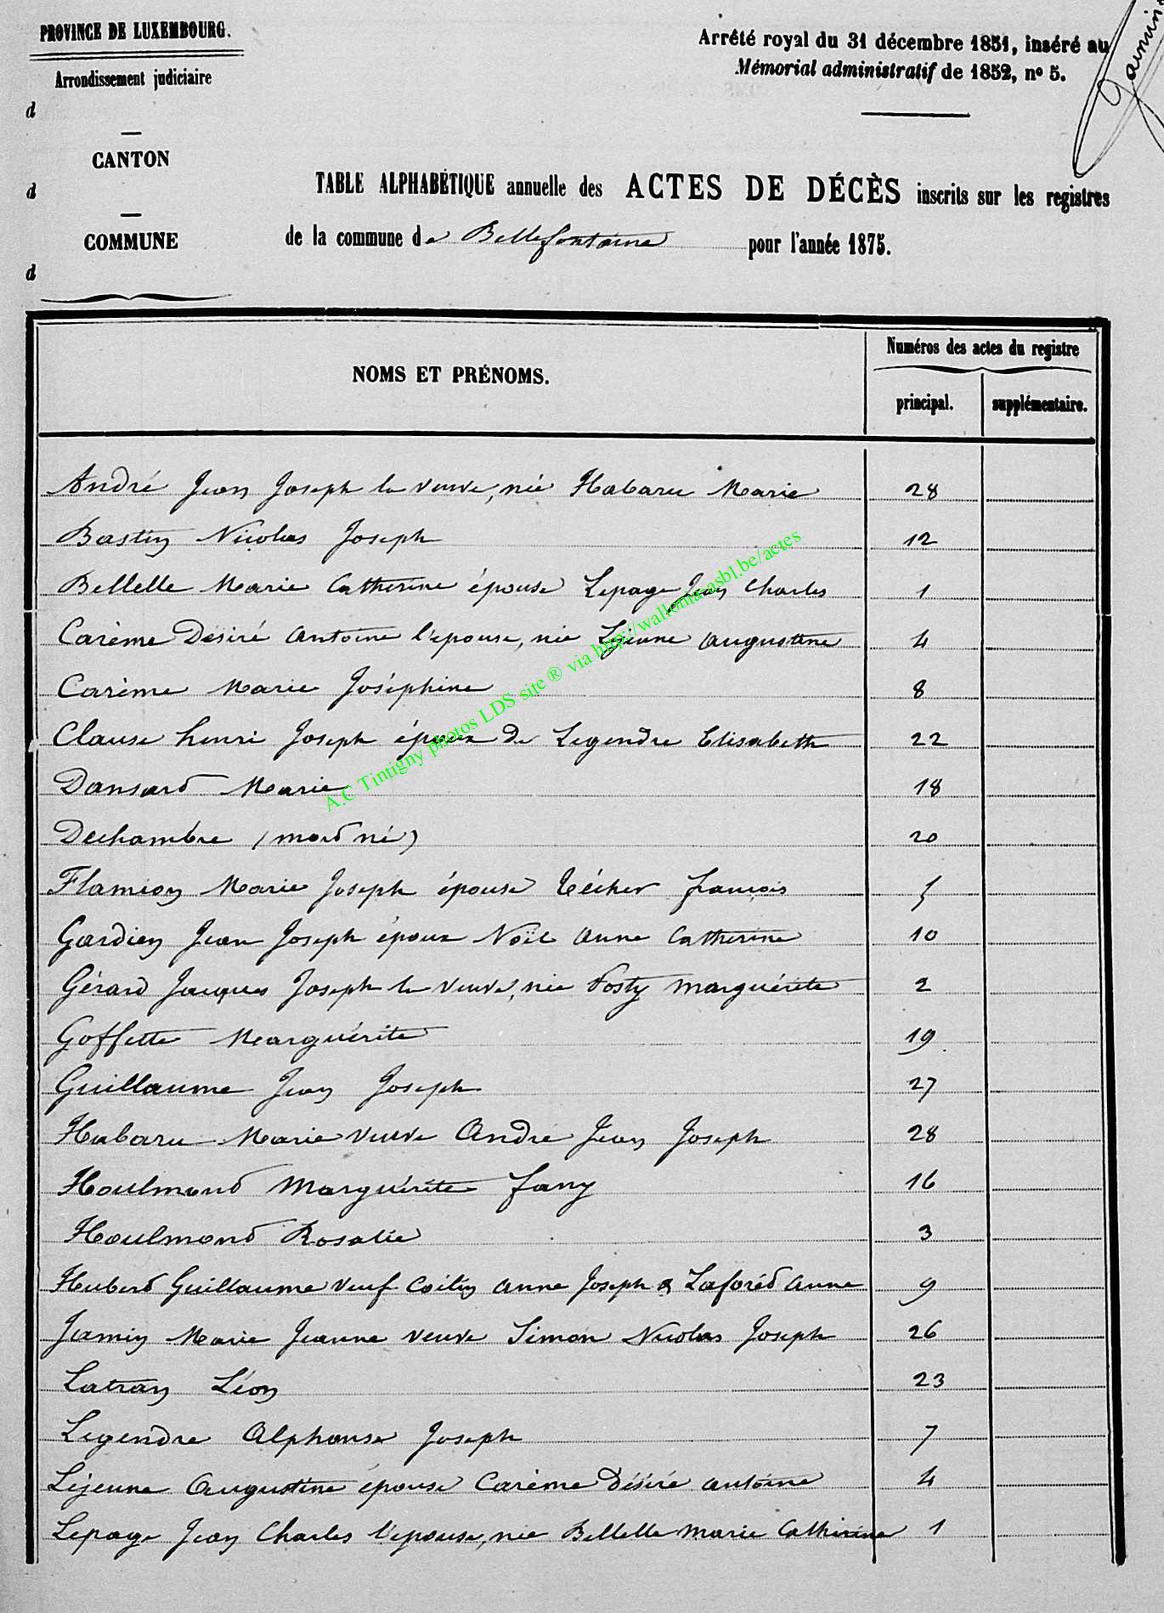 PROVINCE DE LUXEMBOURG.
Arrondissement judiciaire
d
CANTON
d
COMMUNE
d
Arrêté royal du 31 décembre 1851, inséré au
Mémorial administratif de 1852, nº 5.
TABLE ALPHABÉTIQUE annuelle des ACTES DE DÉCÈS inscrits sur les registres
de la commune de Bellefontaine pour l'année 1875.
NOMS ET PRÉNOMS.
Numéros des actes du registre
principal.
supplémentaire.
André Jean Joseph la veuve, née Habaru Marie 28
Bastin Nicolas Joseph 12
Bellelle Marie Catherine épouse Lepage Jean Charles 1
Carème Désiré Antoine l'épouse, née Lejeune Augustine 4
Carème Marie Joséphine 8
Clause henri Joseph époux de Legendre Elisabeth 22
Dansard Marie 18
Dechambre (mord né) 20
Flamion Marie Joseph épouse françois 5
Gardien Jean Joseph époux Noël Anne Catherine 10
Gérard Jacques Joseph la veuve, née Posty Marguérite 2
Goffette Marguérite 19
Guillaume Jean Joseph 27
Habaru Marie veuve André Jean Joseph 28
Houlmond Marguérite fany 16
Houlmond Rosalie 3
Hubert Guillaume veuf Anne Joseph & Laforêt Anne 9
Jamin Marie Jeanne veuve Simon Nicolas Joseph 26
Latran Léon 23
Legendre Alphonse Joseph 7
Lejeune Augustine épouse Carème Désiré Antoine 4
Lepage Jean Charles l'épouse, née Bellelle Marie Catherine 1
A.C Tintigny photos LDS site ® via http://wallonia-asbl.be/actes